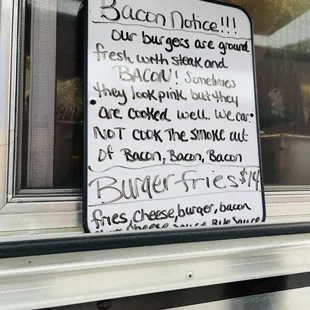 Bacon Notice!!!
Our burgers are ground
fresh with steak and
BACON! Sometimes
they look pink but they
are cooked well. We can
NOT COOK THE SMOKE OUT
OF Bacon, Bacon, Bacon
Burger fries $14
fries, cheese, burger, bacon
cheese sauce